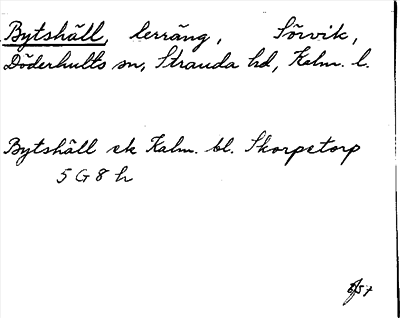 Bytshäll, lerräng, Sörvik,
Döderhults sn, Stranda hd, Kalm. l.
Bytshäll ek Kalm. bl. Skorpetorp
5 G 8 h